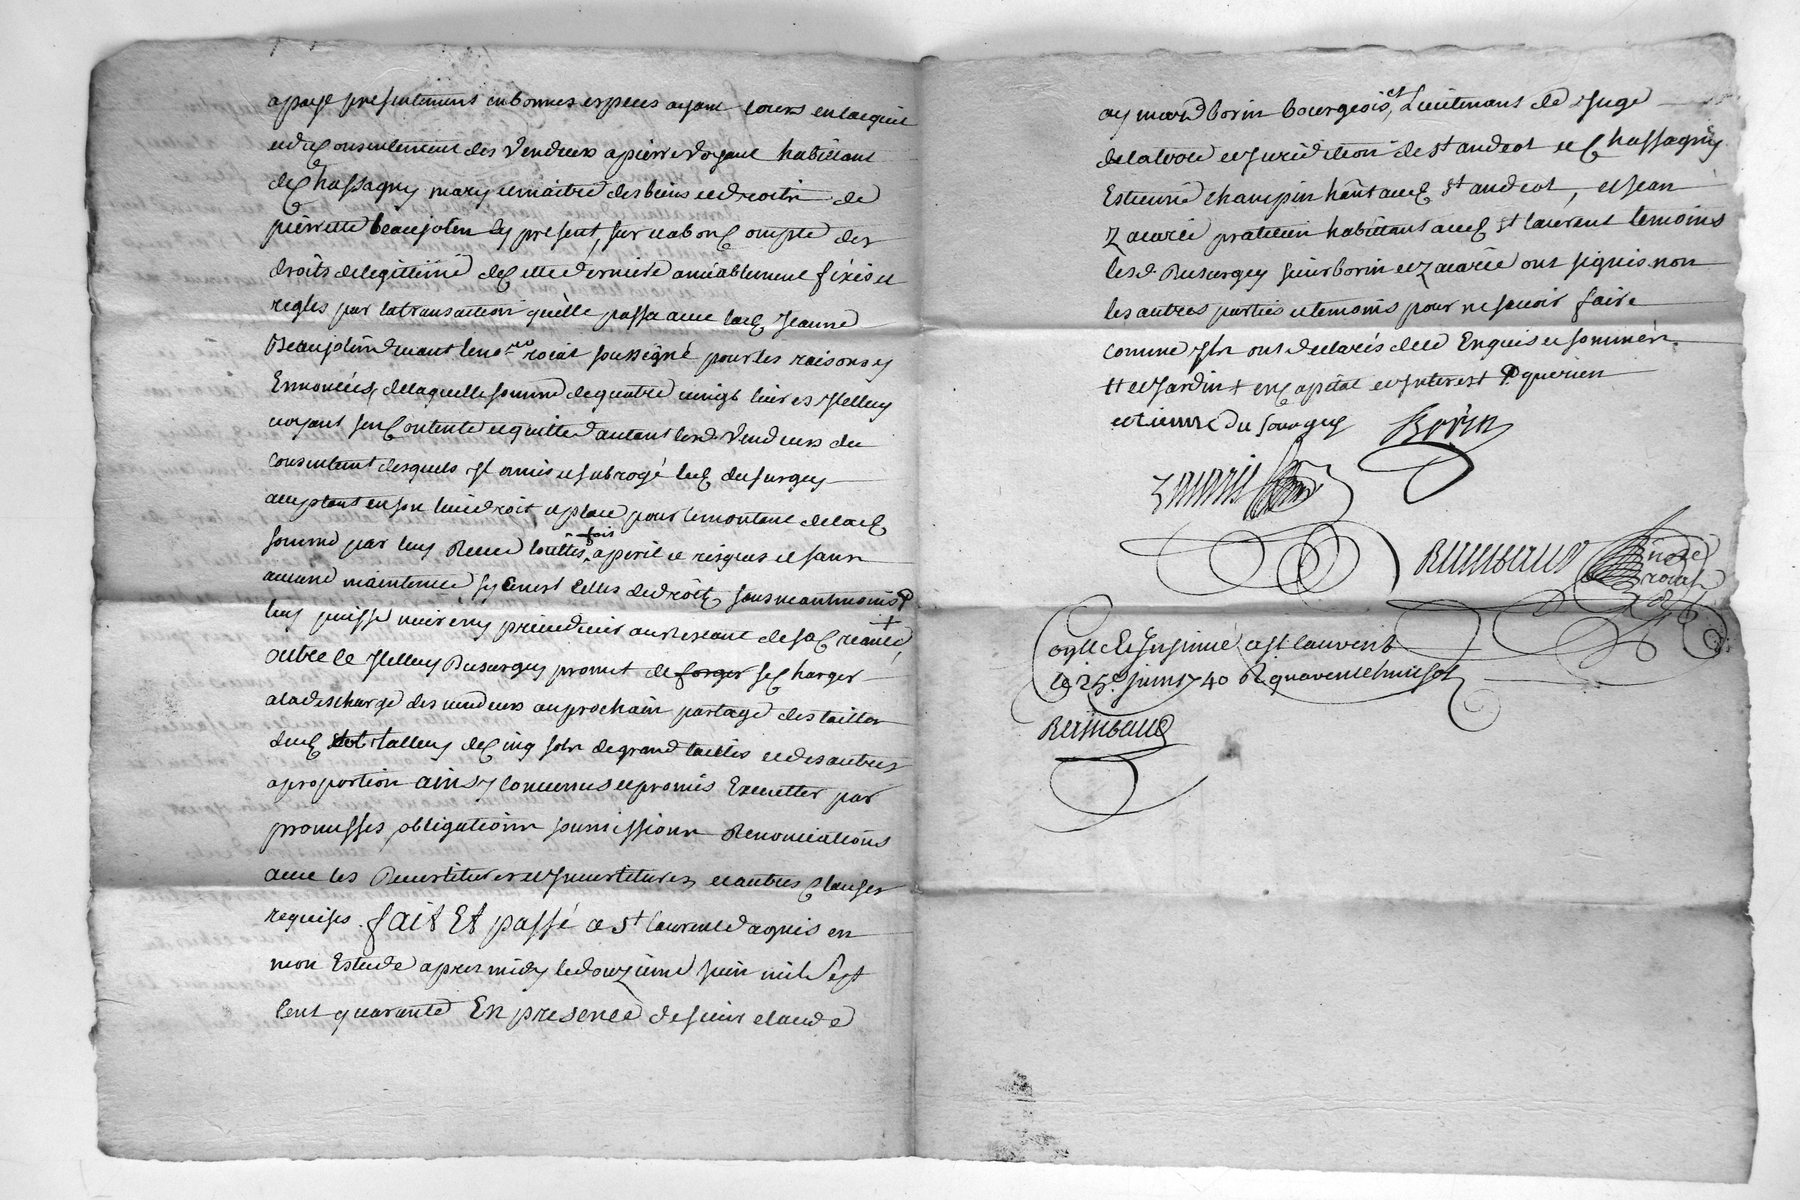 apayé presentement en bonnes especes ayant cours enlacquit
et du Consentement des Vendeurs a pierre Voyant habittant
de Chassagny mary et maitre des biens et droits de
pierrette beaujolin Cy present, sur et abon Compte des
droits de legittime de Cette derniere amiablement fixés et
regles par la transaction qu'elle passa avec lad. Jeanne
Beaujolin devant le no.re roial soussigné pour les raisons y
Ennoncées, de laquelle somme de quatre vingt livres Icelluy
voyant sen Contente et quitte d'autant lesd. Vendeurs du
consentement desquels Il a mis et subrogé led. dusurgey
acceptant en son lieu droit et place pour le montant de lad.
somme par luy Receue touttes fois a peril et risques et sans
aucune maintenue sy Cenest Celles de droit, sans neantmoins P
luy puisse nuire ny prejudicier au Restant de sa Creance +
outre ce Icelluy Dusurgey promet de forger se Charger
a la descharge des vendeurs au prochain partage des tailles
dud. st talleny de Cinq sols de grand tailles et des autres
a proportion ainsy Convenus et promis Executter par
promesses, obligations soumissions Renonciations
avec les Revestitures et Investitures, et autres Clauses
requises. fait Et passé a St laurent dagnis en
mon Estude apres midy le douzieme juin mil sept
Cent quarante En presence de sieur claude
aymard borin bourgeois, et Lieutenant de Juge
de la terre et Juridiction de st andeol et Chassagny
Estienne champin hânt aud. st andeol, et Jean
Zacarie praticien habittant aud. st laurent temoins
lesd. Dusurgey sieur borin et Zacarie ont signés non
les autres parties et temoins pour ne scavoir faire
comme Ils ont declarés de ce Enquis et sommés.
++ et Jardin + en Capital et Interest P
etienne du sourgey Borin
Zacarie
Reimbaud no.re roial
Conllé Et Insinué a st laurent
le 25e juin 1740 R. quarente huit sols
Reimbaud